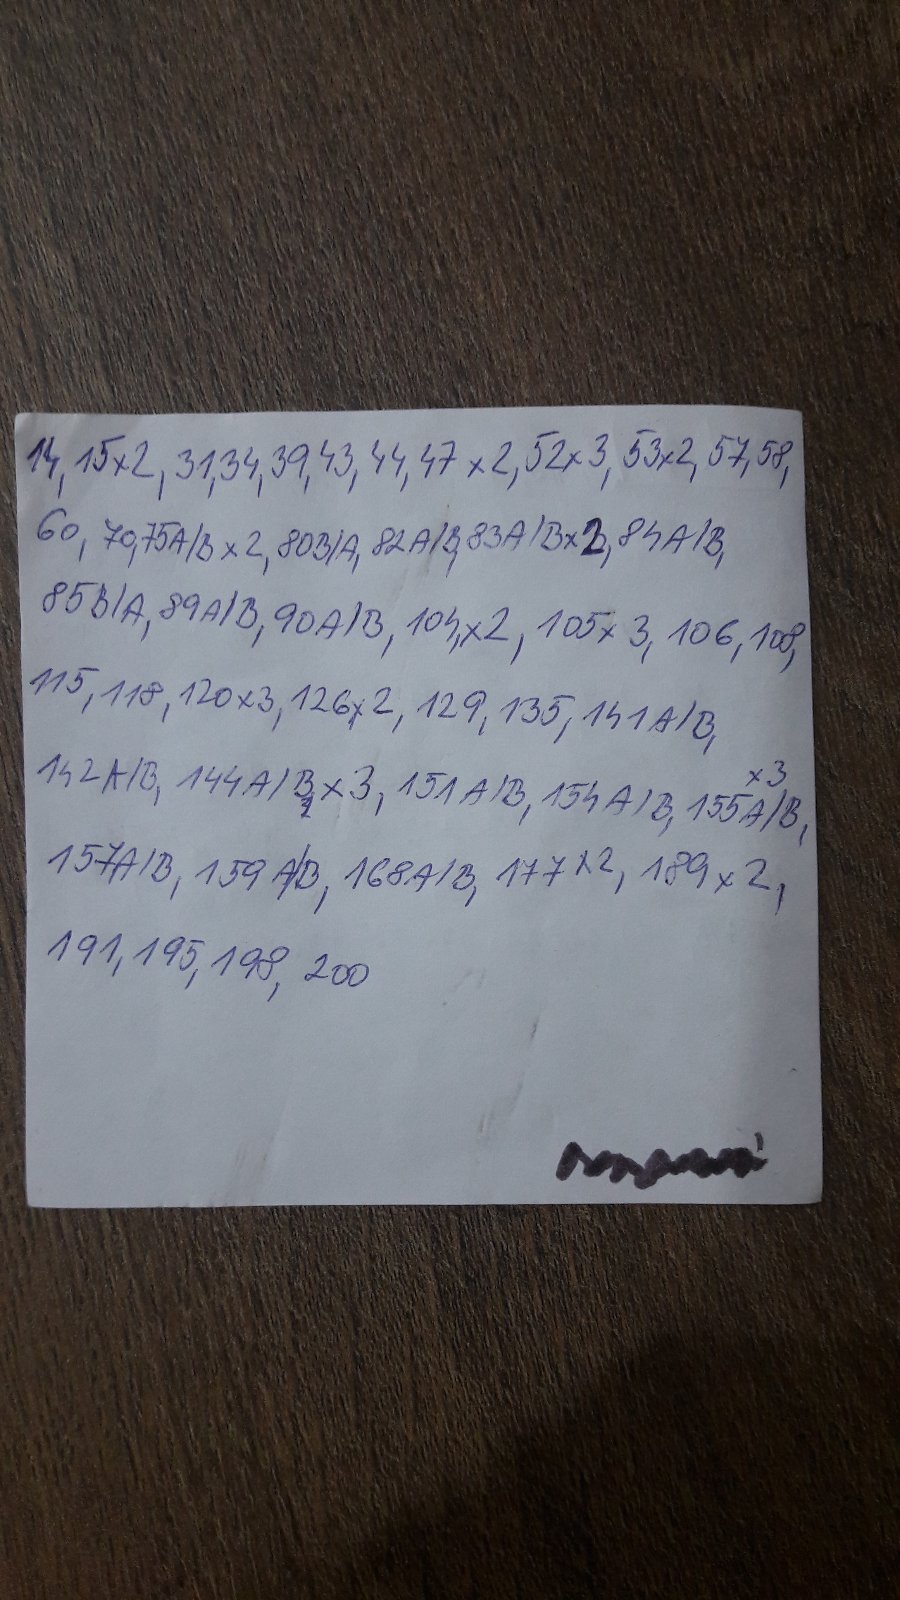 14, 15x2, 31, 34, 39, 43, 44, 47 x2, 52x3, 53x2, 57, 58,
60, 70, 75A/B x2, 80B/A, 82A/B, 83A/Bx2, 84A/B,
85B/A, 89A/B, 90A/B, 104, x2, 105x3, 106, 108,
115, 118, 120x3, 126x2, 129, 135, 141A/B,
142A/B, 144A/B, x3, 151A/B, 154A/B, 155A/B, x3
157A/B, 159A/B, 168A/B, 177x2, 189x2,
191, 195, 198, 200